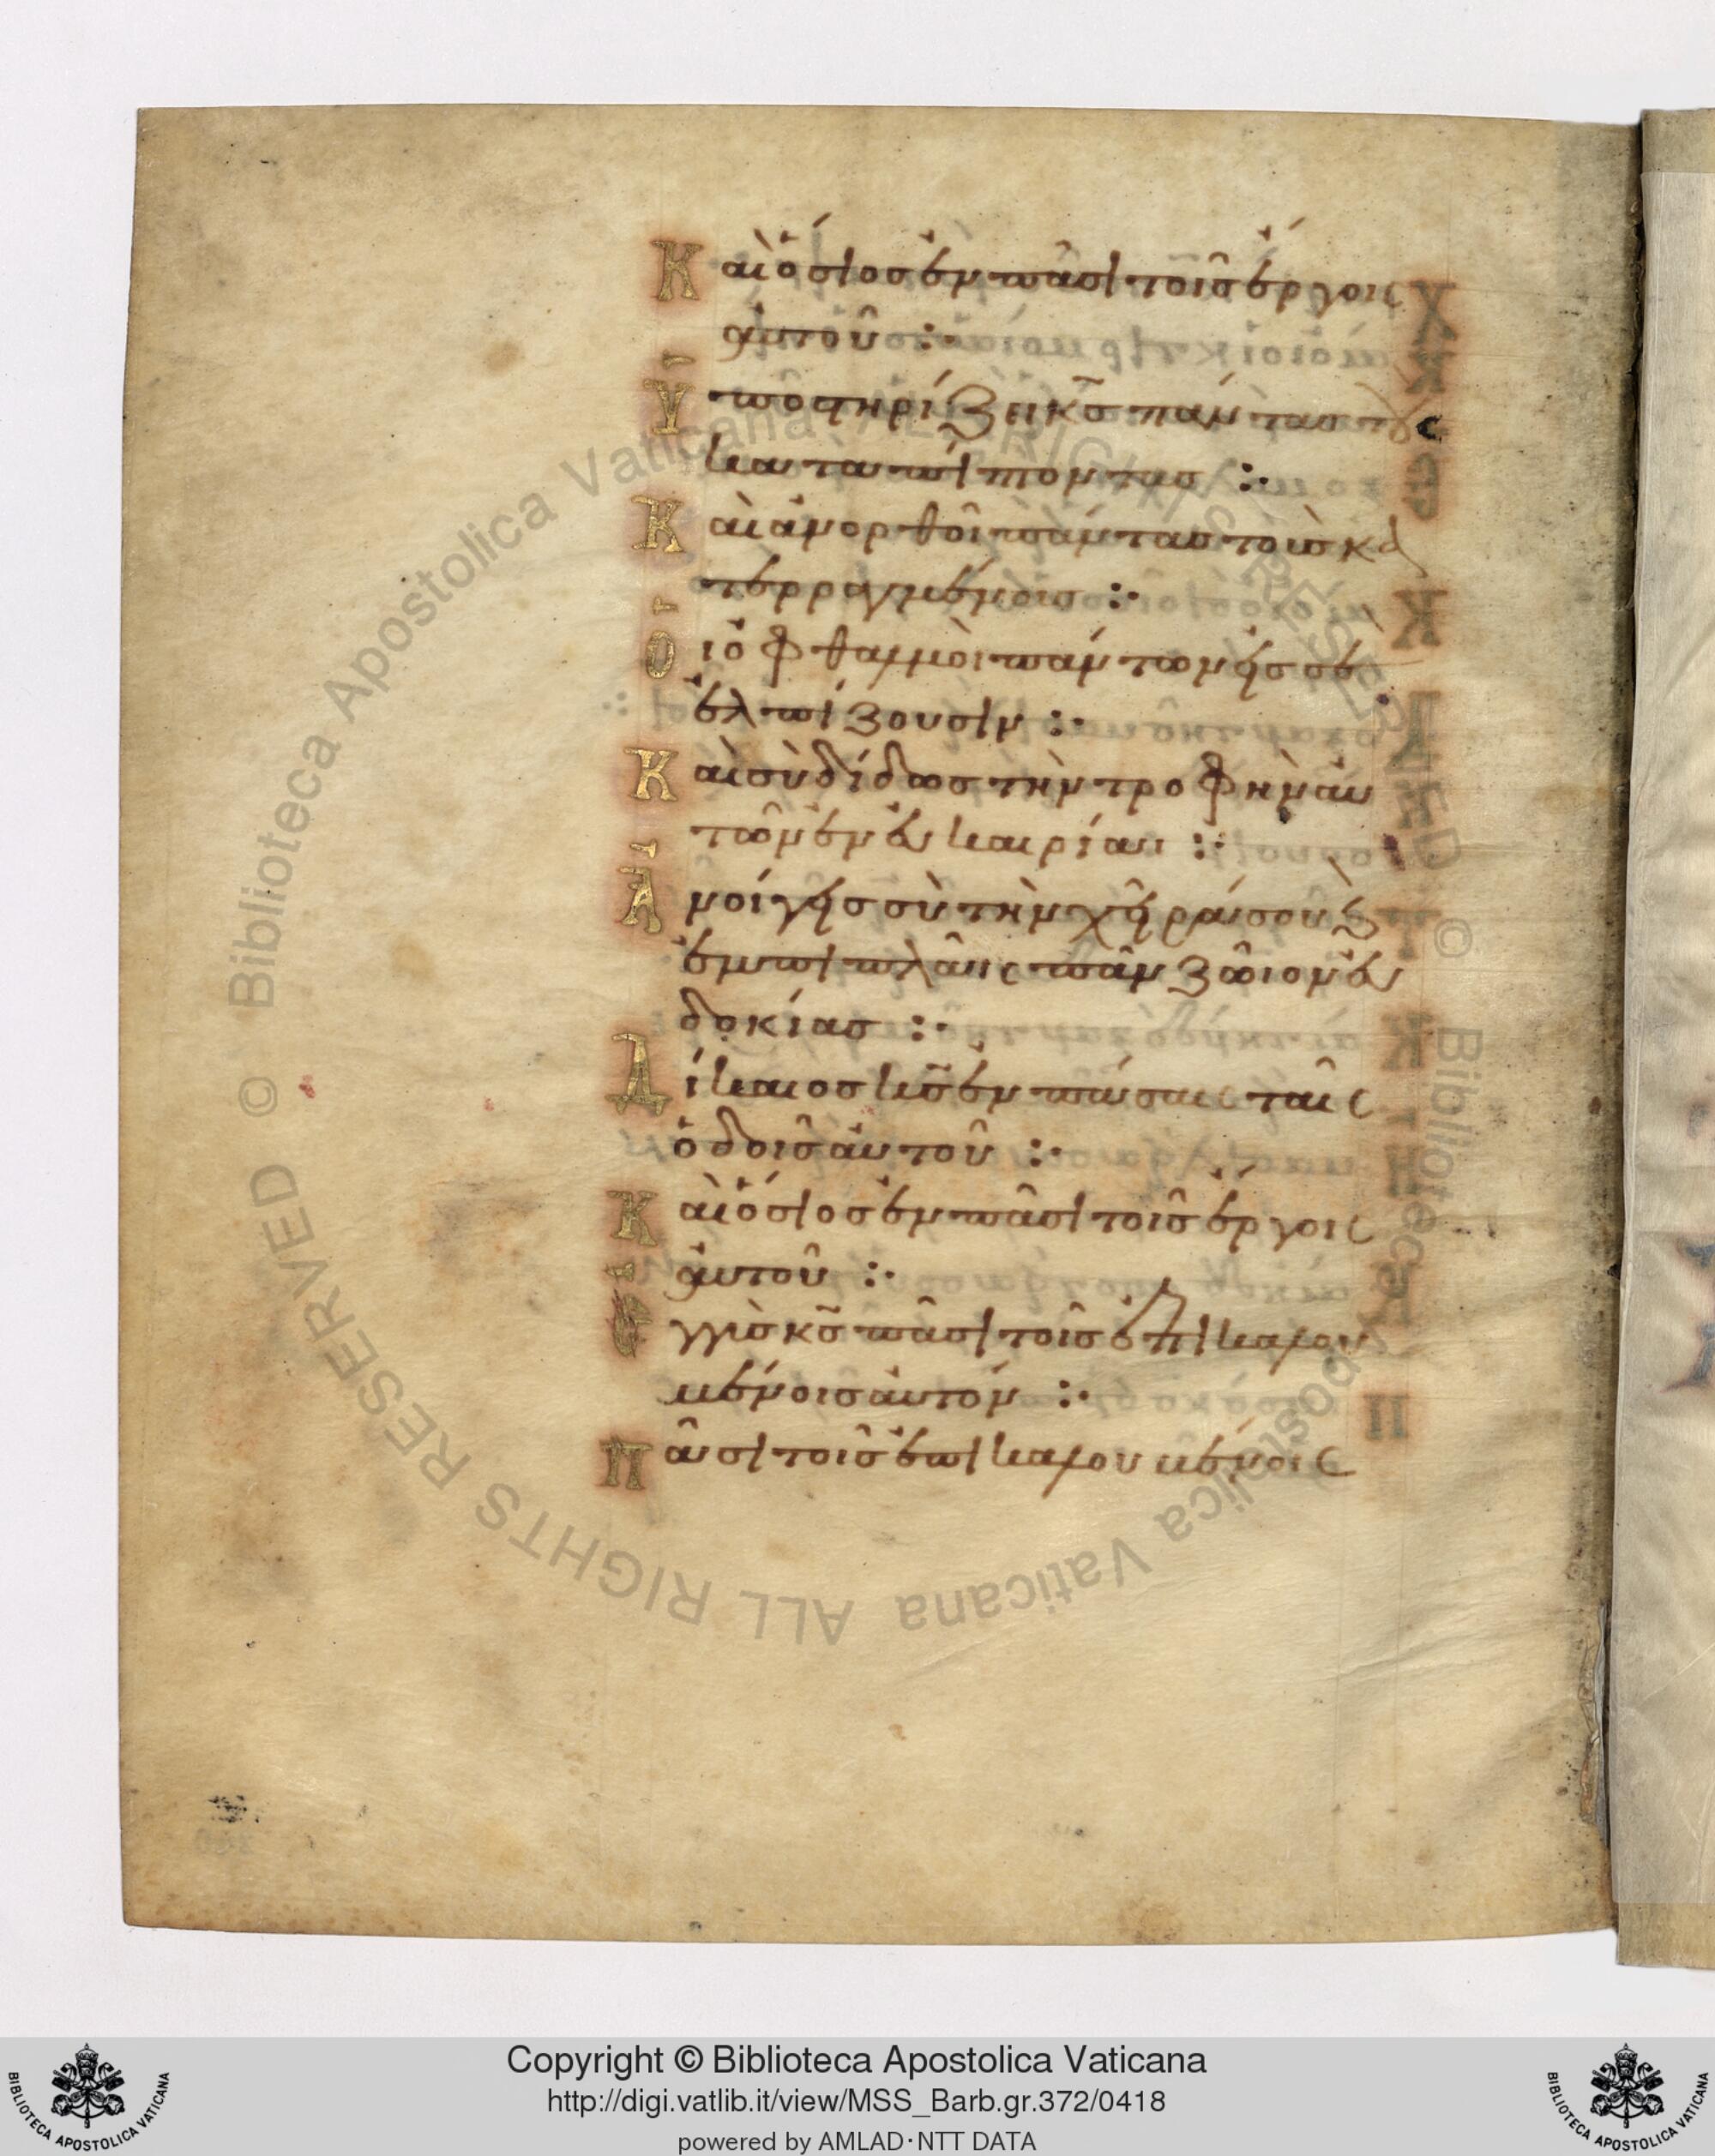 Καὶ ὅσιος ἐν πᾶσι τοῖς ἔργοις
αὐτοῦ :·
Ὑποστηρίζει κ̅ς̅ πάντας τοὺς
καταπίπτοντας :·
Καὶ ἀνορθοῖ πάντας τοὺς κα
τερραγμένους :·
Οἱ ὀφθαλμοὶ πάντων εἰς σὲ
ἐλπίζουσιν :·
Καὶ σὺ δίδως τὴν τροφὴν αὐ
τῶν ἐν εὐκαιρίαι :·
Ἀνοίγεις σὺ τὴν χεῖρά σου καὶ
ἐμπιπλᾶις πᾶν ζῶιον εὐ
δοκίας :·
Δίκαιος κ̅ς̅ ἐν πάσαις ταῖς
ὁδοῖς αὐτοῦ :·
Καὶ ὅσιος ἐν πᾶσι τοῖς ἔργοις
αὐτοῦ :·
Ἐγγὺς κ̅ς̅ πᾶσι τοῖς ἐπικαλου
μένοις αὐτόν :·
Πᾶσι τοῖς ἐπικαλουμένοις
© Biblioteca Apostolica Vaticana ALL RIGHTS RESERVED © Biblioteca Apostolica Vaticana ALL RIGHTS RESERVED
Copyright © Biblioteca Apostolica Vaticana
http://digi.vatlib.it/view/MSS_Barb.gr.372/0418
powered by AMLAD·NTT DATA
BIBLIOTECA APOSTOLICA VATICANA
BIBLIOTECA APOSTOLICA VATICANA